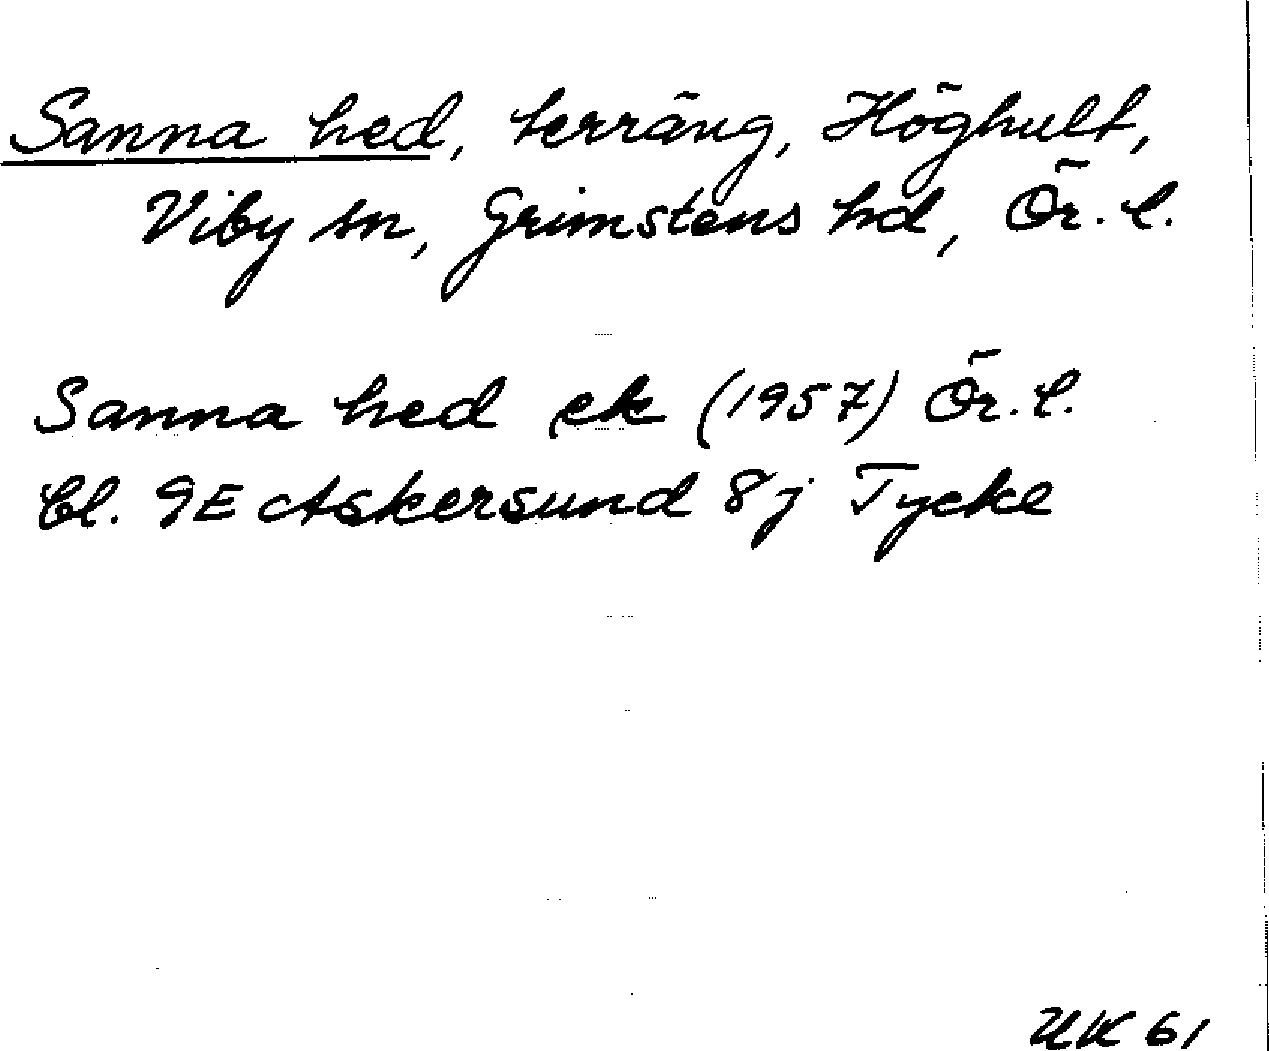 Sanna hed, terräng, Höghult,
Viby sn, Grimstens hd, Ör. l.
Sanna hed ek (1957) Ör. l.
Bl. 9E Askersund 8j Tycke
UK 61